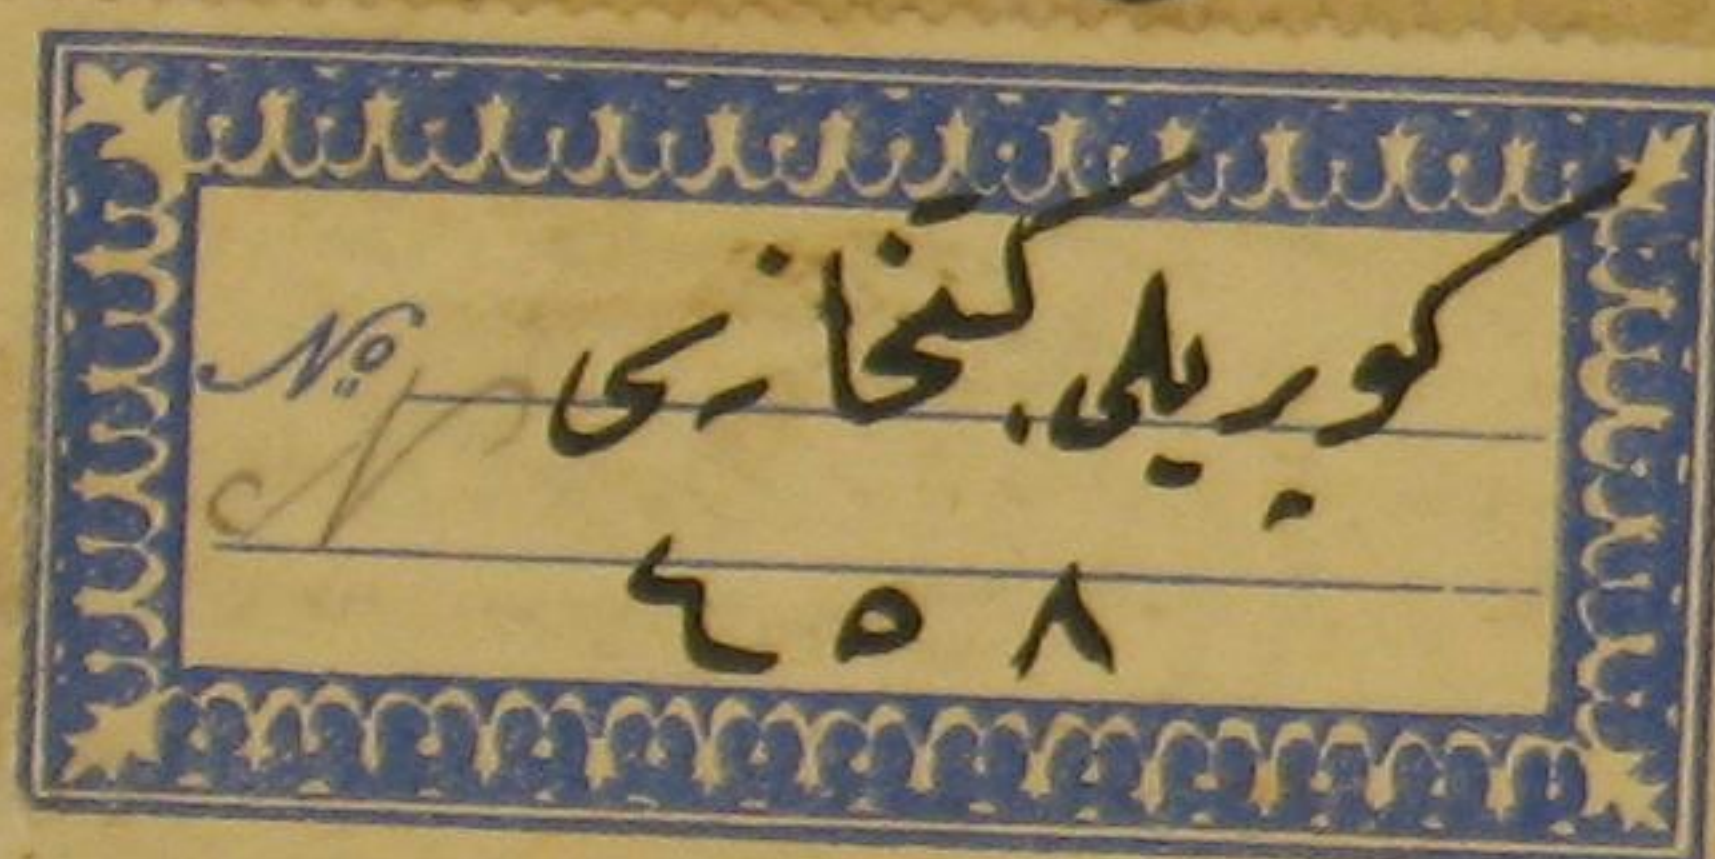 كوپريلى كتبخانه سى
№
٤٥٨